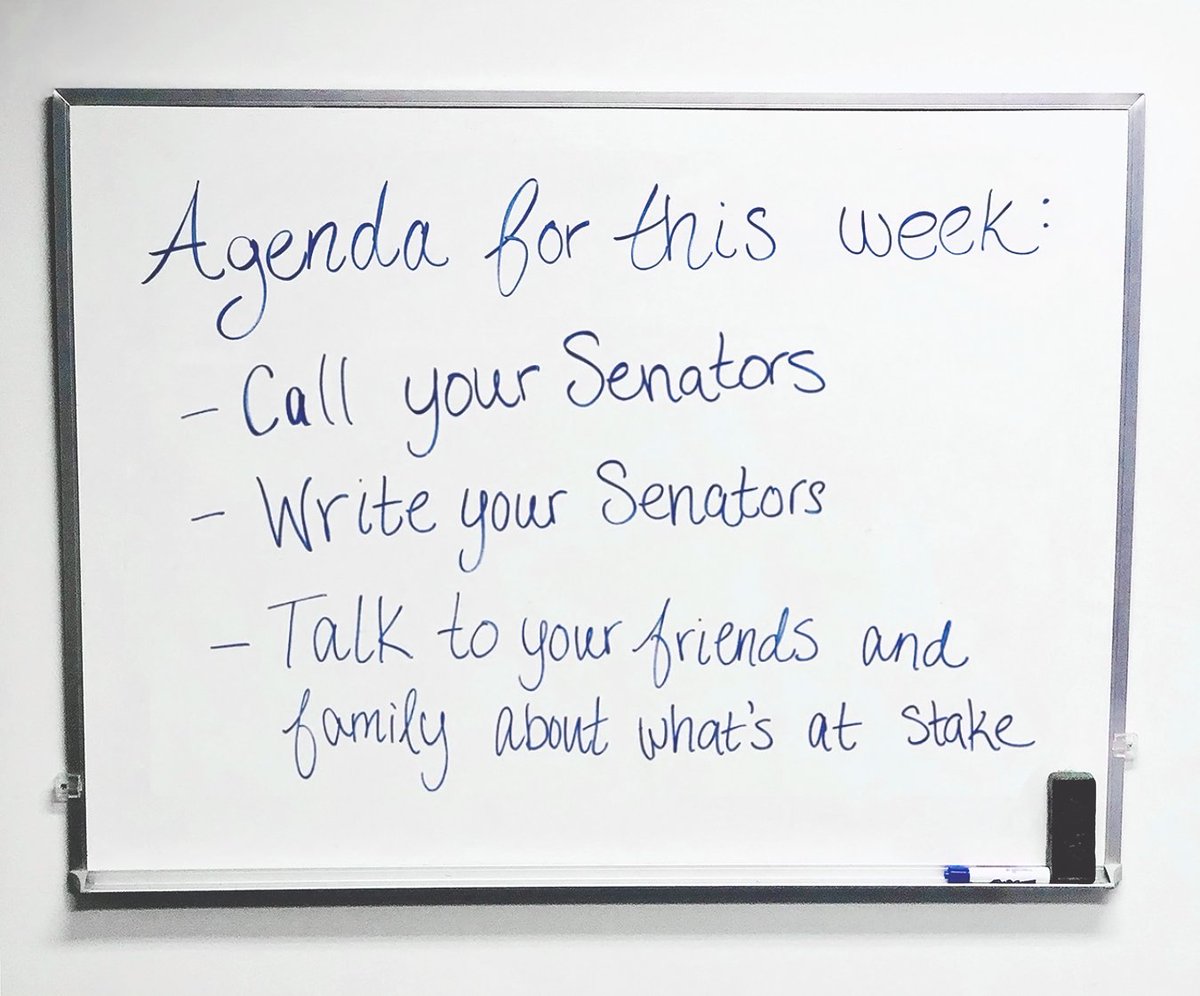 Agenda for this week:
- Call your Senators
- Write your Senators
- Talk to your friends and
family about what's at stake